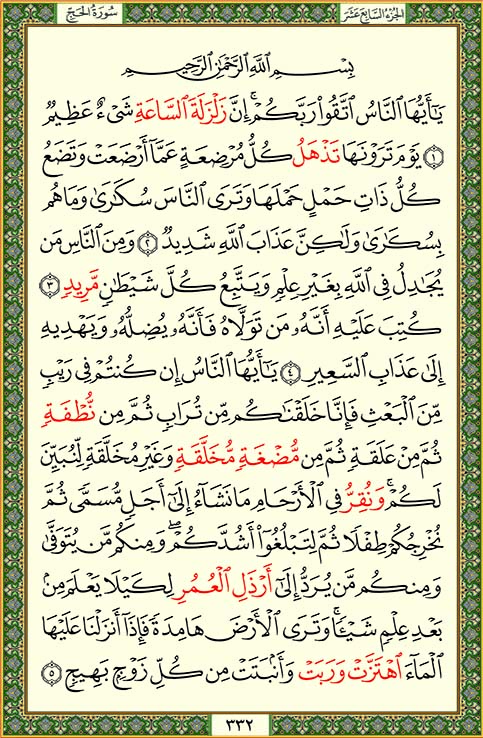 الجزء السابع عشر
سورة الحج
بِسْمِ ٱللَّهِ ٱلرَّحْمَٰنِ ٱلرَّحِيمِ
يَٰٓأَيُّهَا ٱلنَّاسُ ٱتَّقُوا۟ رَبَّكُمْ ۚ إِنَّ زَلْزَلَةَ ٱلسَّاعَةِ شَىْءٌ عَظِيمٌ
١ يَوْمَ تَرَوْنَهَا تَذْهَلُ كُلُّ مُرْضِعَةٍ عَمَّآ أَرْضَعَتْ وَتَضَعُ
كُلُّ ذَاتِ حَمْلٍ حَمْلَهَا وَتَرَى ٱلنَّاسَ سُكَٰرَىٰ وَمَا هُم
بِسُكَٰرَىٰ وَلَٰكِنَّ عَذَابَ ٱللَّهِ شَدِيدٌ ٢ وَمِنَ ٱلنَّاسِ مَن
يُجَٰدِلُ فِى ٱللَّهِ بِغَيْرِ عِلْمٍ وَيَتَّبِعُ كُلَّ شَيْطَٰنٍ مَّرِيدٍ ٣
كُتِبَ عَلَيْهِ أَنَّهُۥ مَن تَوَلَّاهُ فَأَنَّهُۥ يُضِلُّهُۥ وَيَهْدِيهِ
إِلَىٰ عَذَابِ ٱلسَّعِيرِ ٤ يَٰٓأَيُّهَا ٱلنَّاسُ إِن كُنتُمْ فِى رَيْبٍ
مِّنَ ٱلْبَعْثِ فَإِنَّا خَلَقْنَٰكُم مِّن تُرَابٍ ثُمَّ مِن نُّطْفَةٍ
ثُمَّ مِنْ عَلَقَةٍ ثُمَّ مِن مُّضْغَةٍ مُّخَلَّقَةٍ وَغَيْرِ مُخَلَّقَةٍ لِّنُبَيِّنَ
لَكُمْ ۚ وَنُقِرُّ فِى ٱلْأَرْحَامِ مَا نَشَآءُ إِلَىٰٓ أَجَلٍ مُّسَمًّى ثُمَّ
نُخْرِجُكُمْ طِفْلًا ثُمَّ لِتَبْلُغُوٓا۟ أَشُدَّكُمْ ۖ وَمِنكُم مَّن يُتَوَفَّىٰ
وَمِنكُم مَّن يُرَدُّ إِلَىٰٓ أَرْذَلِ ٱلْعُمُرِ لِكَيْلَا يَعْلَمَ مِنۢ
بَعْدِ عِلْمٍ شَيْـًٔا ۚ وَتَرَى ٱلْأَرْضَ هَامِدَةً فَإِذَآ أَنزَلْنَا عَلَيْهَا
ٱلْمَآءَ ٱهْتَزَّتْ وَرَبَتْ وَأَنۢبَتَتْ مِن كُلِّ زَوْجٍۭ بَهِيجٍ ٥
٣٣٢